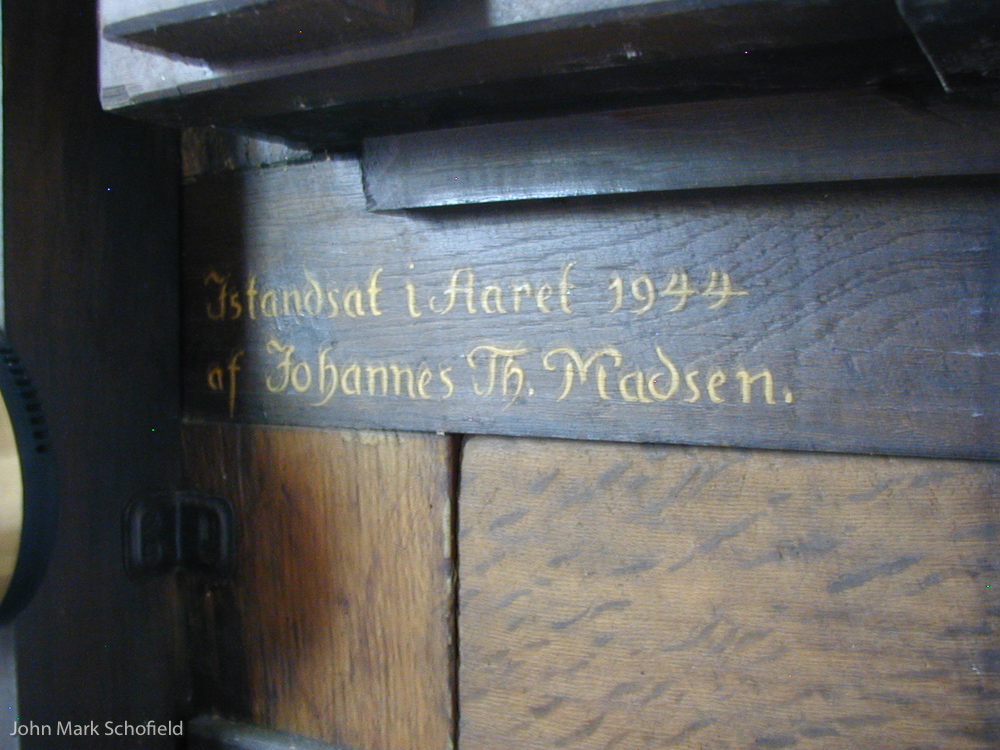 Istandsat i Aaret 1944
af Johannes Th. Madsen.
John Mark Schofield